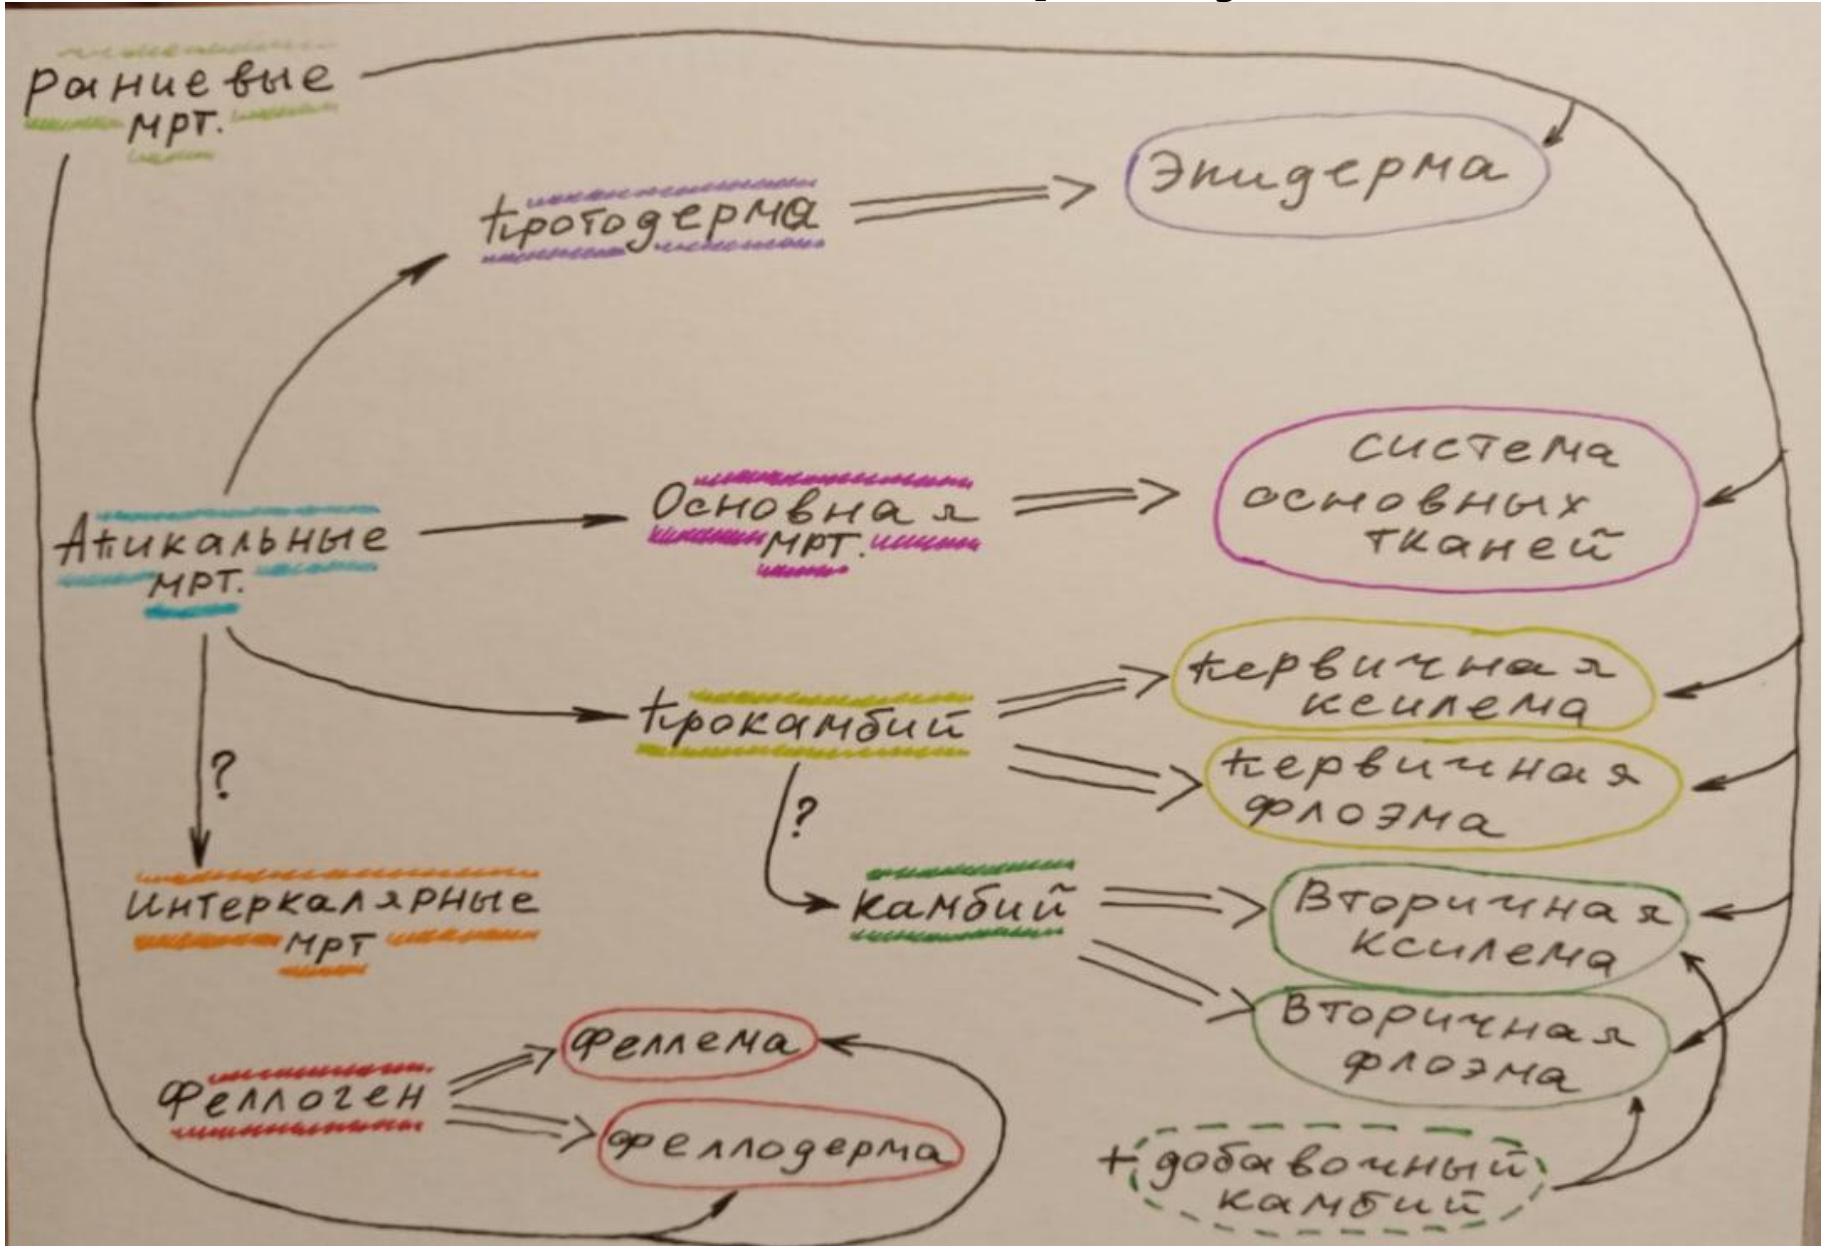 Раневые
мрт.
протодерма
Эпидерма
Апикальные
мрт.
Основная
мрт.
система
основных
тканей
прокамбий
первичная
ксилема
первичная
флоэма
?
?
Интеркалярные
мрт
камбий
Вторичная
ксилема
Вторичная
флоэма
Феллоген
феллема
феллодерма
+ добавочный
камбий